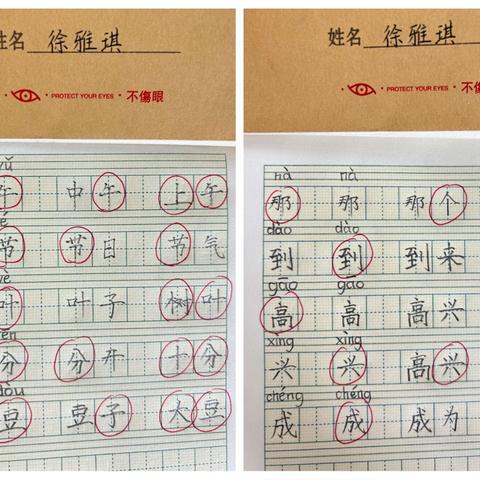 姓名 徐雅琪
PROTECT YOUR EYES · 不傷眼
午 中午 上午
节 节日 节气
叶 叶子 树叶
分 分开 十分
dòu
豆 豆子 大豆
姓名 徐雅琪
PROTECT YOUR EYES · 不傷眼
nà nà
那 那 那个
dào dào
到 到 到来
gāo gāo
高 高 高兴
xìng xìng
兴 兴 高兴
chéng chéng
成 成 成为